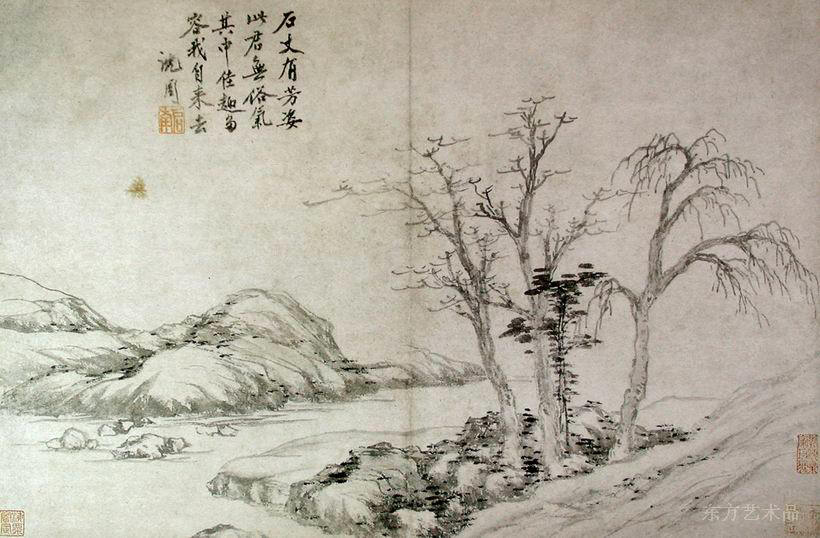 石丈有芳姿
此君無俗氣
其中佳趣多
容我自来去
沈周
东方艺术品